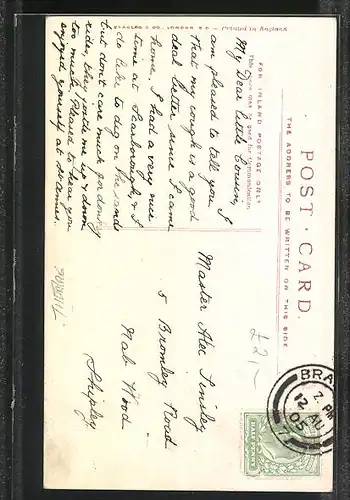 POST CARD.
THE ADDRESS TO BE WRITTEN ON THIS SIDE
FOR INLAND POSTAGE ONLY
This Space may be used for Communication
LONDON E.C. Printed in England
My Dear little Cousin, I
am pleased to tell you
that my cough is a good
deal better since I came
home. I had a very nice
time at Scarborough, & I
do like to dig on the sands
but don't care much for donkey
rides they jolts me up & down
too much. Pleased to hear you
enjoyed yourself at
Master Alec Tinsley
5 Bromley Road
Nab Wood
Shipley
£2/-
BRA
2 PM
12 AU
05
HALFPENNY